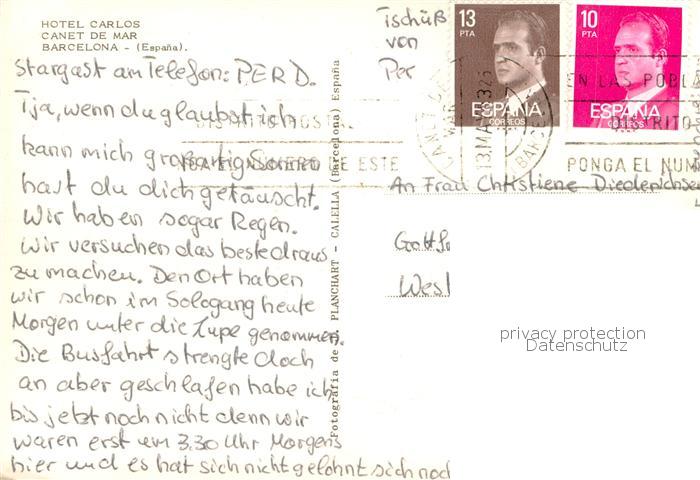 HOTEL CARLOS
CANET DE MAR
BARCELONA - (España).
Stargast am Telefon: PER D.
Tja, wenn du glaubst ich
kann mich großartig Sonnen
hast du dich getäuscht.
Wir haben sogar Regen.
Wir versuchen das beste draus
zu machen. Den Ort haben
wir schon im Sologang heute
Morgen unter die Lupe genommen.
Die Busfahrt strengte doch
an aber geschlafen habe ich
bis jetzt noch nicht denn wir
waren erst um 3.30 Uhr Morgens
hier und es hat sich nicht gelohnt sich noch
Fotografía de PLANCHART - CALELLA (Barcelona) España
Tschüß
von
Per
13
PTA
ESPAÑA
CORREOS
10
PTA
ESPAÑA
CORREOS
CANET DE MAR
EN LAS POBL
DISTRITO
PONGA EL NUM
ESTE
An Frau Christiene Diederichsen
Gottfr
West
privacy protection
Datenschutz